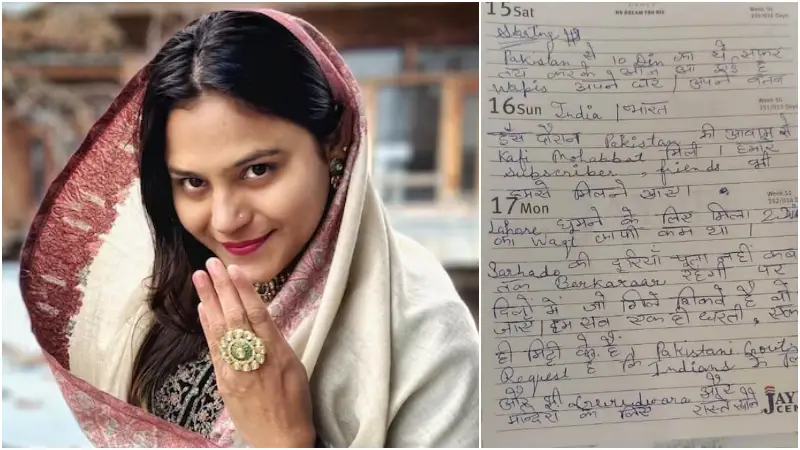 15 Sat
WE DREAM FOR YOU
Week 50
Starting
Pakistan से 10 Din का ये सफर
तय करके आज आ गई है
Wapis अपने घर / अपने वतन
16 Sun
India / भारत
Week 50
इस दौरान Pakistan की आवाम से
Kafi Mohabbat मिली । हमारे
subscriber, friends भी
हमसे मिलने आए ।
17 Mon
Week 51
Lahore घूमने के लिए मिला 2 दिन
का Waqt काफी कम था ।
Sarhado की दूरियाँ पता नहीं कब
तक Barkaraar रहेंगी पर
दिलों में जो गिले शिकवे है वो
जाएं । हम सब एक ही धरती, एक
ही मिट्टी के हैं । Pakistani Govt
Request है कि Indians के
और भी Gurudwara और
मन्दिरों के लिए रास्ते खोले
JAY
CEN